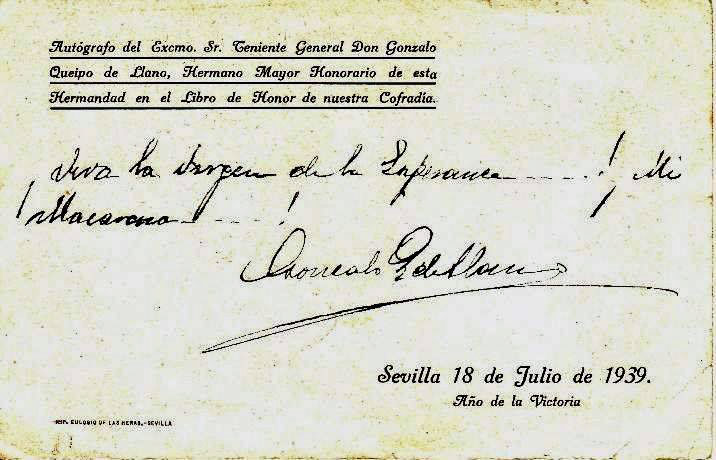 Autógrafo del Excmo. Sr. Teniente General Don Gonzalo
Queipo de Llano, Hermano Mayor Honorario de esta
Hermandad en el Libro de Honor de nuestra Cofradía.
¡Viva la Virgen de la Esperanza ----! ¡Mi
Macarena ----!
Gonzalo Q de Llano
Sevilla 18 de Julio de 1939.
Año de la Victoria
IMP. EULOGIO DE LAS HERAS.-SEVILLA